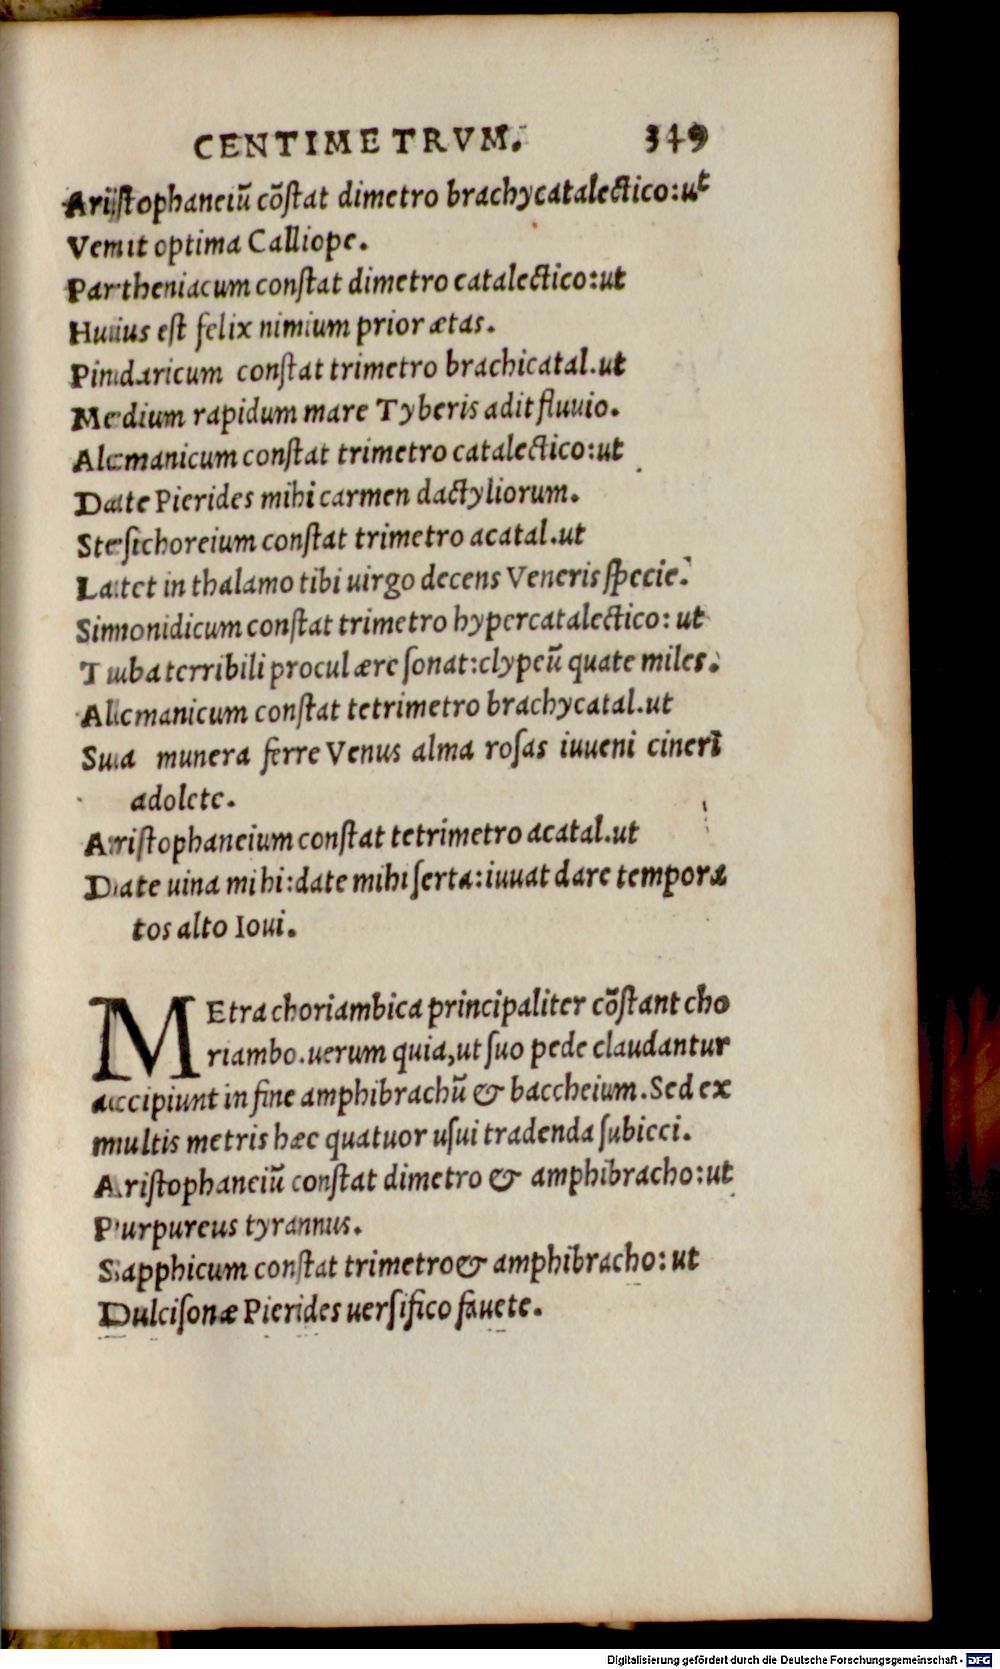 CENTIMETRVM. 349
Aristophaneiū cōſtat dimetro brachycatalectico:ut
Venit optima Calliope.
Partheniacum conſtat dimetro catalectico:ut
Huius eſt felix nimium prior ætas.
Pindaricum conſtat trimetro brachicatal.ut
Medium rapidum mare Tyberis adit fluuio.
Alcmanicum conſtat trimetro catalectico:ut
Date Pierides mihi carmen dactyliorum.
Steſichoreium conſtat trimetro acatal.ut
Latet in thalamo tibi uirgo decens Veneris ſpecie.
Simonidicum conſtat trimetro hypercatalectico: ut
Tuba terribili procul ære ſonat:clypeū quate miles.
Alcmanicum conſtat tetrimetro brachycatal.ut
Sua munera ferre Venus alma roſas iuueni cineri
adolete.
Ariſtophaneium conſtat tetrimetro acatal.ut
Date uina mihi:date mihi ſerta:iuuat dare tempora
tos alto Ioui.
MEtra choriambica principaliter cōſtant cho
riambo.uerum quia,ut ſuo pede claudantur
accipiunt in fine amphibrachū & baccheium.Sed ex
multis metris hæc quatuor uſui tradenda ſubieci.
Ariſtophaneiū conſtat dimetro & amphibracho:ut
Purpureus tyrannus.
Sapphicum conſtat trimetro & amphibracho: ut
Dulciſonæ Pierides uerſifico fauete.
Digitalisierung gefördert durch die Deutsche Forschungsgemeinschaft - DFG